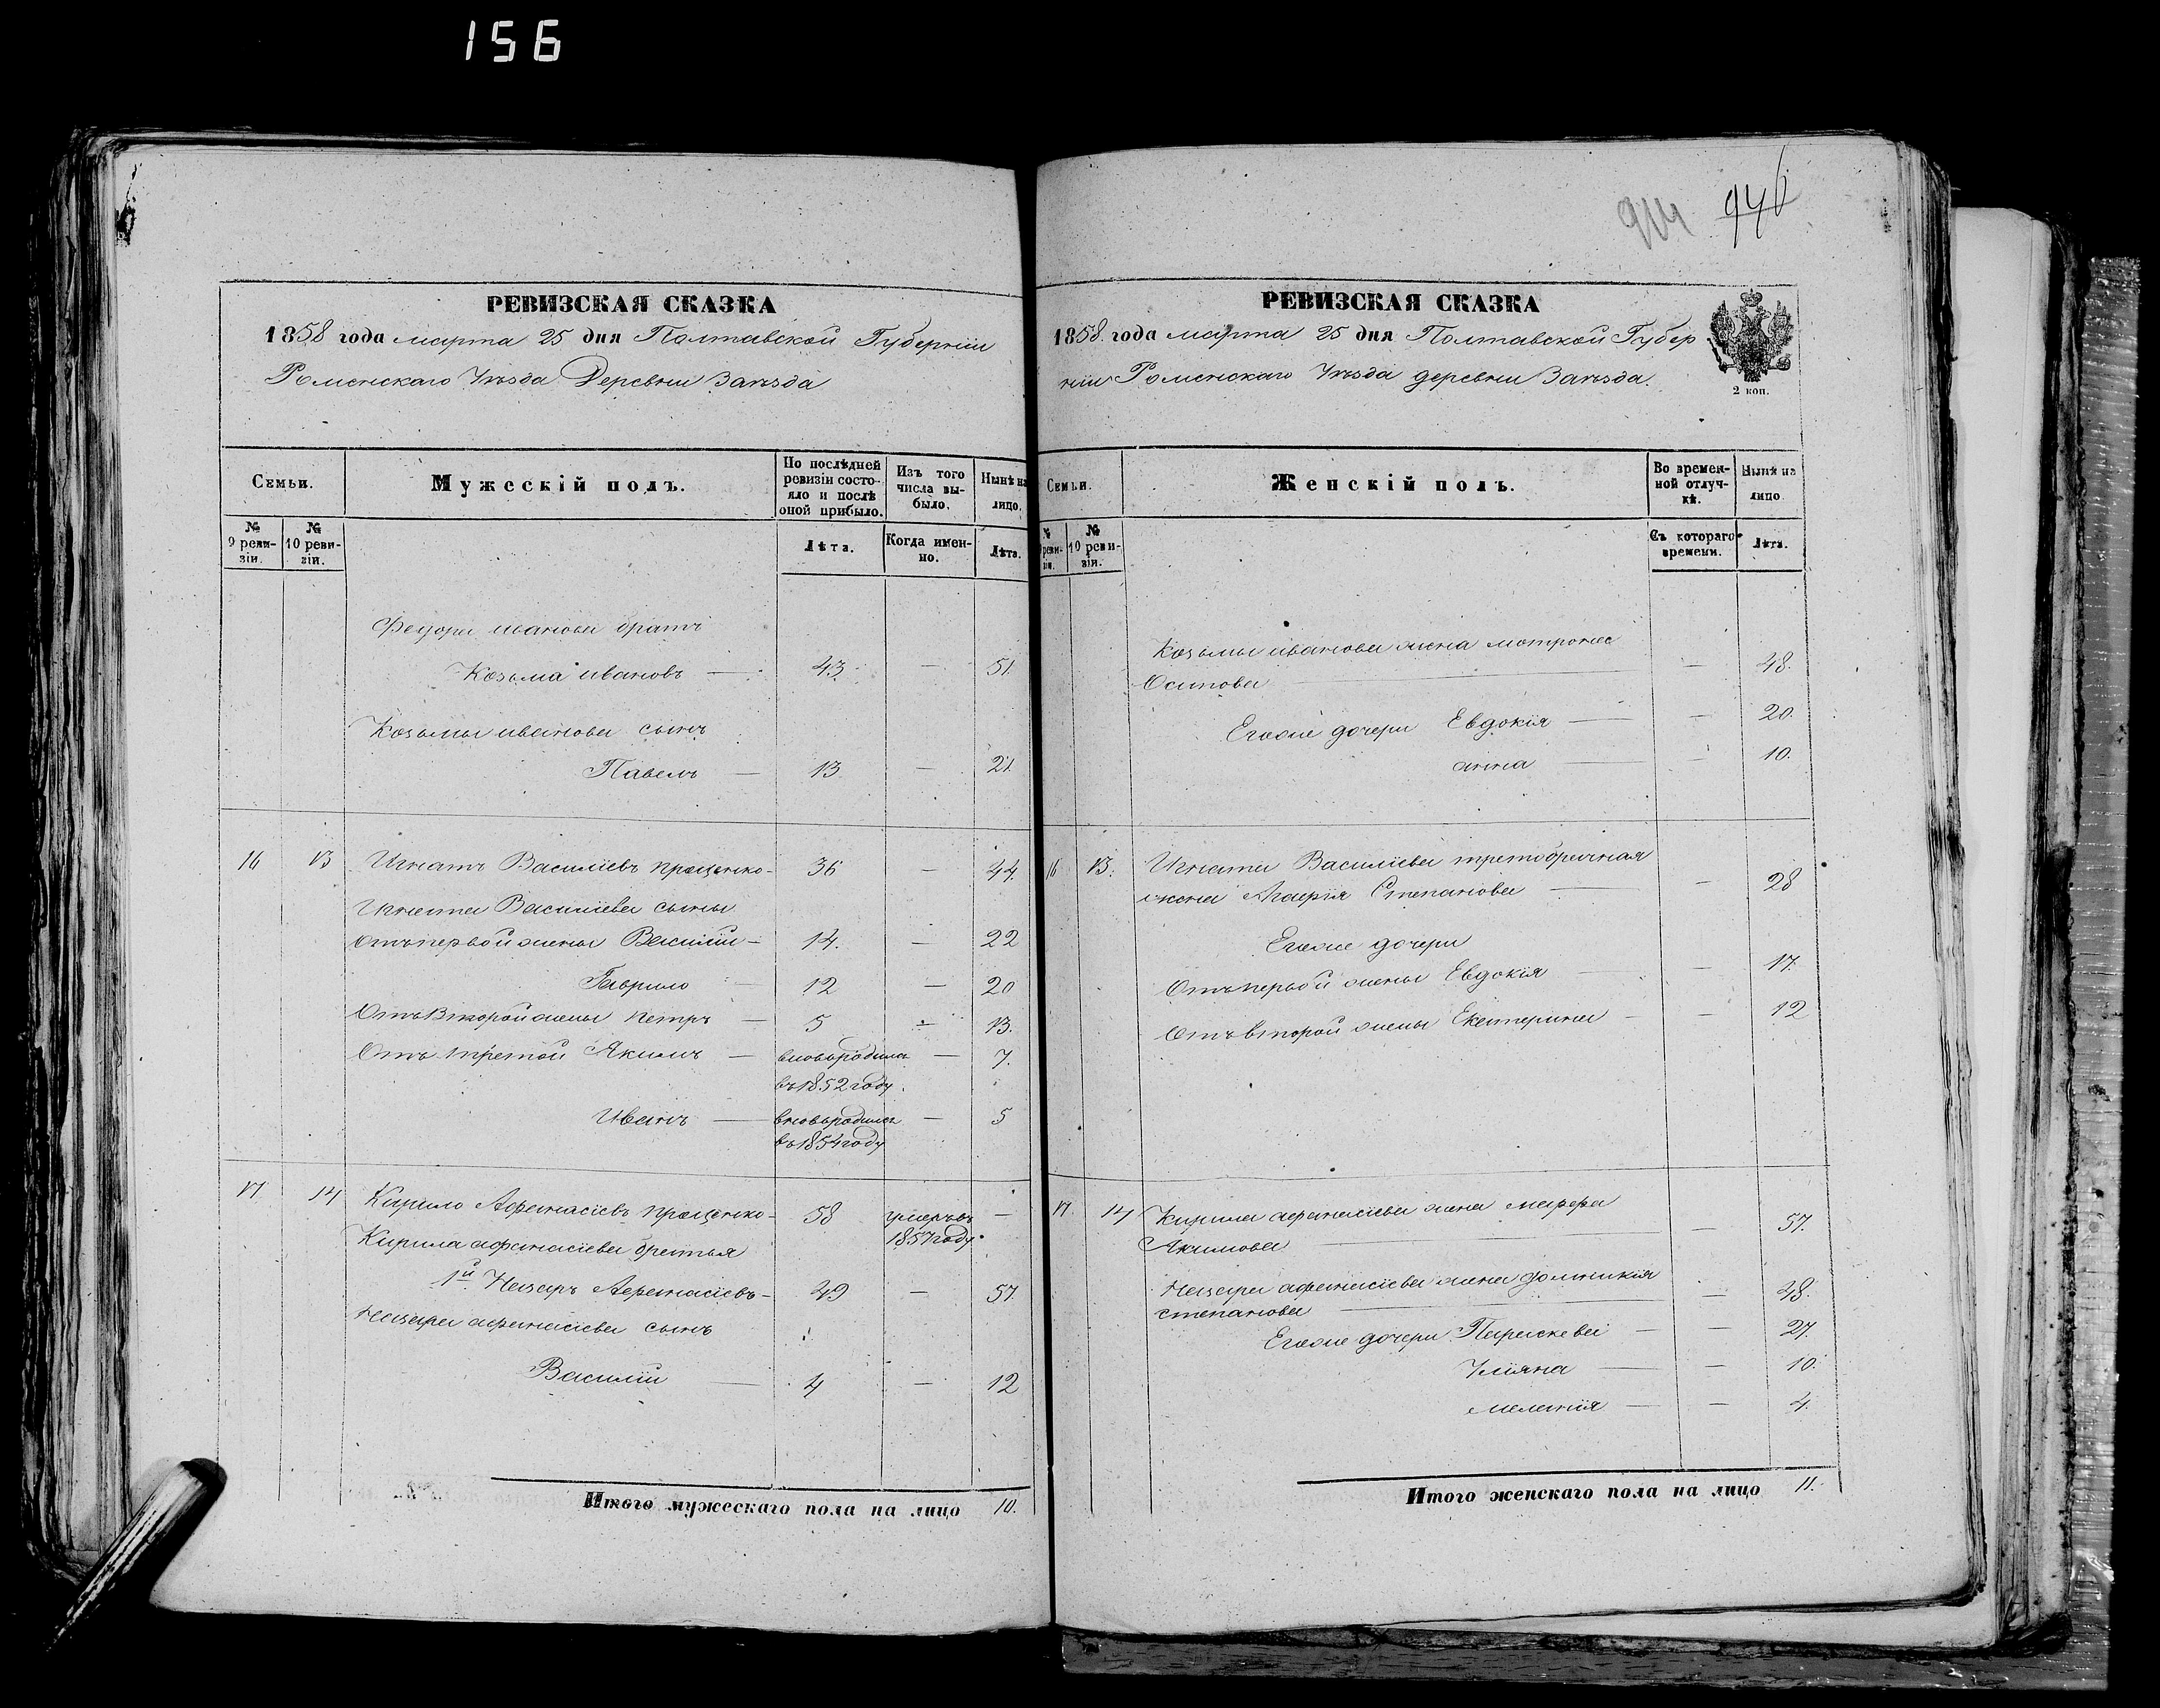 156
946
РЕВИЗСКАЯ СКАЗКА
1858 года марта 25 дня Полтавской Губернии
Роменскаго Уѣзда Деревни Заѣзда
Семьи.
Мужескій полъ.
По послѣдней ревизіи состояло и послѣ оной прибыло.
Изъ того числа выбыло.
Нынѣ на лицо.
№ 9 ревизіи.
№ 10 ревизіи.
Лѣта.
Когда именно.
Лѣта.
Федора иванова братъ
Козьма ивановъ — 43. — 51.
Козьмы иванова сынъ
Павелъ — 13 — 21.
16 13 Игнатъ Василіевъ Прощенко - 36 — 44.
Игната Василіева сыны
Отъ первой жены Василій — 14. — 22
Гаврило — 12 — 20
Отъ Второй жены Петръ — 5 — 13.
Отъ третой Якимъ — вновь родился — 7.
въ 1852 году.
Иванъ — вновь родился — 5
въ 1854 году
17 14 Кирило Афанасіевъ Прощенко - 58 умеръ въ —
1857 году.
Кирила афанасіева братья
1й Назаръ Афанасіевъ - 49 — 57.
Назара афанасіева сынъ
Василій — 4 — 12
Итого мужескаго пола на лицо 10.
РЕВИЗСКАЯ СКАЗКА
1858. года марта 25 дня Полтавской Губер
ніи Роменскаго Уѣзда деревни Заѣзда.
2 коп.
Семьи.
Женскій полъ.
Во временной отлучкѣ.
Нынѣ на лицо
№ 9 ревизіи.
№ 10 ревизіи.
Съ котораго времени.
Лѣта.
Козьмы иванова жена мотрона
Осипова — — 48.
Егоже дочери Евдокія — — 20.
анна — — 10.
16 13. Игната Василіева третобрачная
жена Марія Степанова — — 28
Егоже дочери
Отъ первой жены Евдокія — — 17.
Отъ второй жены Екатерина — — 12
17. 14 Кирила афанасіева жена марфа
Якимова — — 57.
Назара афанасіева жена домникія
степанова — — 48.
Егоже дочери Параскева — — 27.
Уліяна — — 10.
меланія — — 4.
Итого женскаго пола на лицо 11.